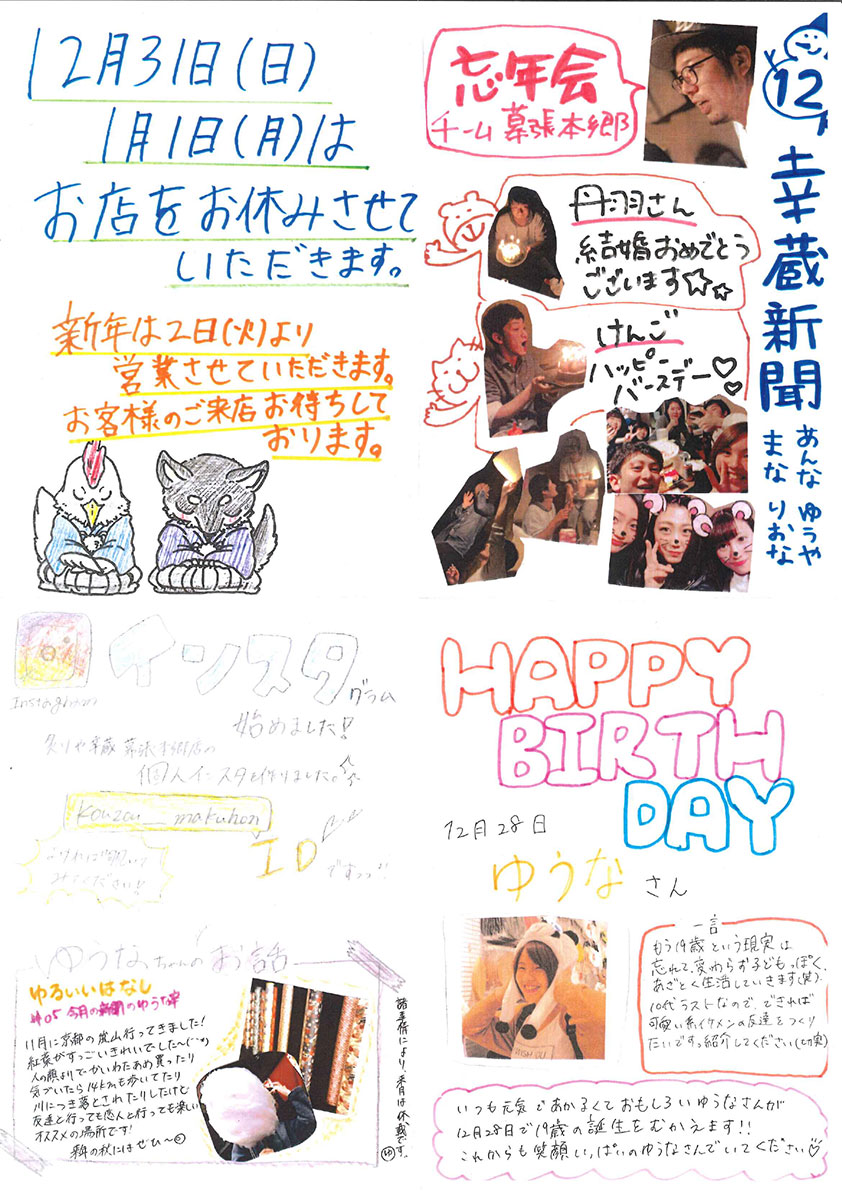 12
幸蔵新聞
あんな ゆうや
まな りおな
忘年会
チーム 幕張本郷
丹羽さん
結婚おめでとう
ございます☆☆
けんご
ハッピー
バースデー♡♡
12月31日(日)
1月1日(月)は
お店をお休みさせて
いただきます。
新年は2日(火)より
営業させていただきます。
お客様のご来店お待ちして
おります。
インスタグラム
Instaghram
始めました!
炙りや幸蔵 幕張本郷店の
個人インスタを作りました。
kouzou__makuhon
ID
ですっっ!!
よければ覗いて
みてください!!
HAPPY
BIRTH
DAY
12月28日
ゆうなさん
一言
もう19歳という現実は
忘れて、変わらず子どもっぽく、
あざとく生活していきます(笑)。
10代ラストなので、できれば
可愛い系イケメンの友達をつくり
たいですっ紹介してください(切実)
いつも元気であかるくておもしろいゆうなさんが
12月28日で19歳の誕生をむかえます!!
これからも笑顔いっぱいのゆうなさんでいてください♡
ゆうなちゃんのお話
ゆるいいはなし
#05 今月の新聞のゆうな
11月に京都の嵐山行ってきました!
紅葉がすっごいきれいでした〜
人の顔よりでーかいわたあめ買ったり
気づいたら14km も歩いてたり
川につき落とされたりしたけど
友達と行っても恋人と行っても楽しい
オススメの場所です!
来年の秋にはぜひ〜
諸事情により、来月は休載です。
ゆ